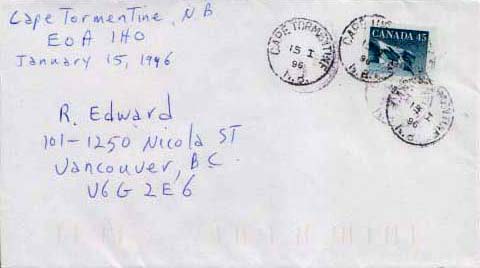 Cape Tormentine, N.B
E0A 1H0
January 15, 1996
R. Edward
101-1250 Nicola ST
Vancouver, BC
V6G 2E6
CANADA 45
CAPE TORMENTINE
15 I
96
N.B.
CAPE
96
N.B.
15 I
96